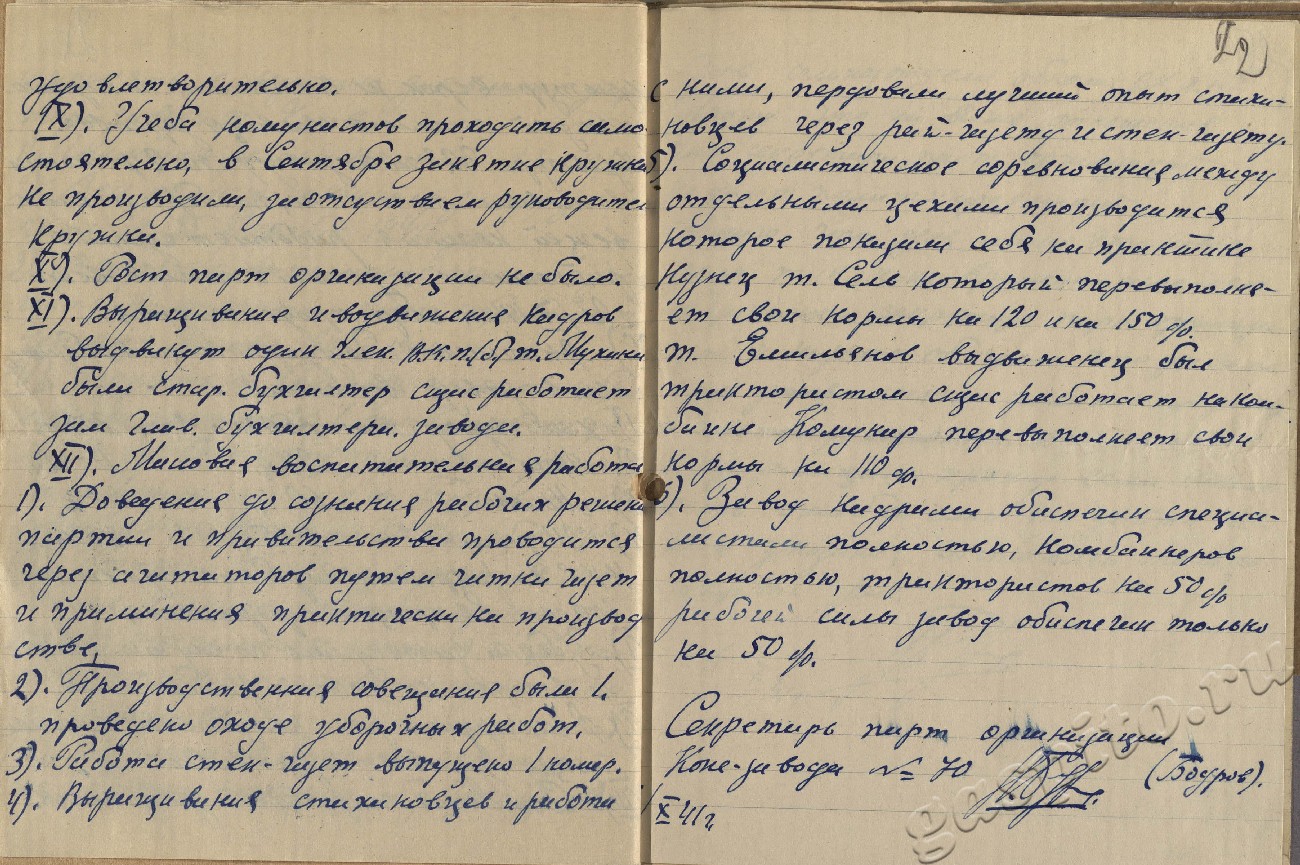 удовлетворительно.
IX). Учеба комунистов проходить само
стоятельно, в Сентябре занятие кружка
не производили, за отсуствием руководител
кружка.
X). Рост парт организации не было.
XI). Выращивание и водвижения кадров
выдвинут один член В.К.П.(б) т. Мухина
была стар. бухгалтер сичас работает
зам глав. бухгалтера. завода.
XII). Масовая воспитательная работа
1). Доведения до сознания рабочих решени
партии и правительства проводится
через агитаторов путем читки газет
и приминения практически на производ
стве,
2). Производственная совещания были 1.
проведено оходе уборочных работ.
3). Работа стен-газет выпущено 1 номер.
4). Выращивания стахановцев и работа
22
с ними, пердовали лучший опыт стаха-
новцев через рай-газету и стен-газету.
5). Социалистическое соревнования между
отдельными цехами производится
которое показали себя на практике
Кузнец т. Сель который перевыполня-
ет свои нормы на 120 и на 150%.
т. Емильянов выдвиженец был
трактористом сичас работает на ком-
байне Комунар перевыполняет свои
нормы на 110%.
6). Завод кадрами обиспечин специа-
листами полностью, комбайнеров
полностью, трактористов на 50%
рабочей силы завод обиспечин только
на 50%.
Секретарь парт организации
Коне-завода № 70 (Бодров).
X 41 г
gasoito.ru